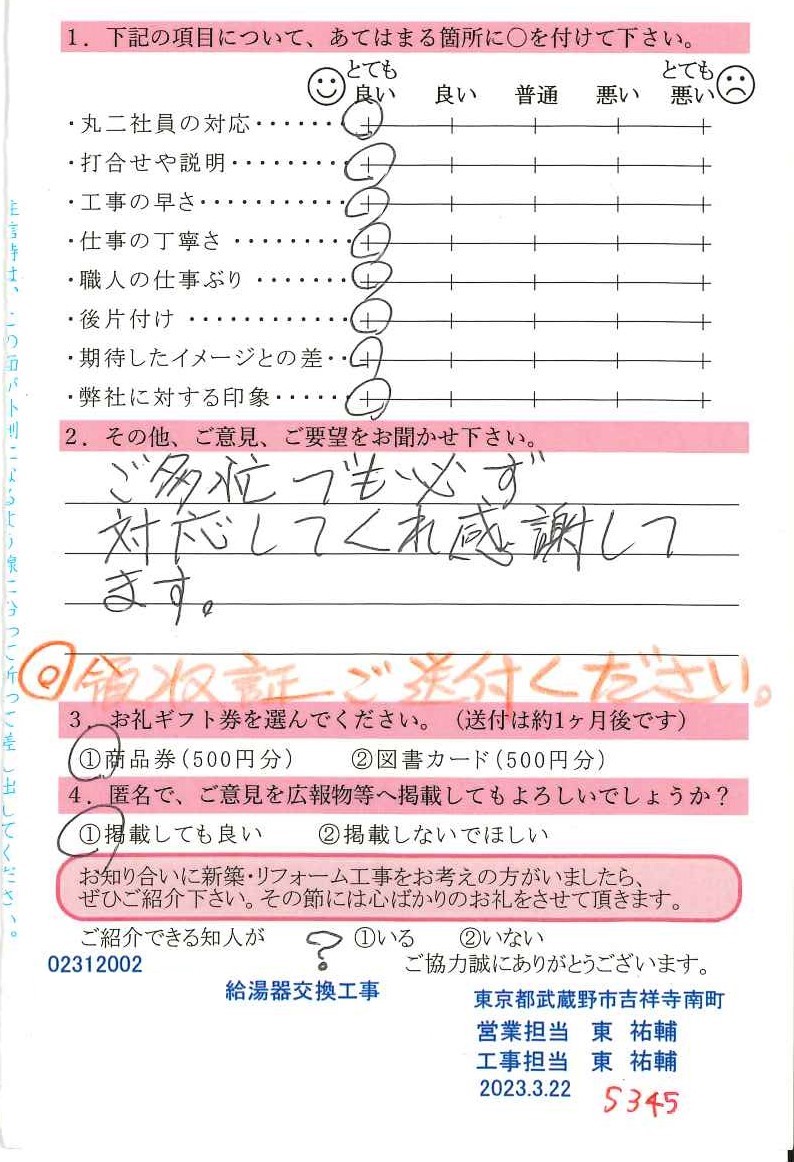 1．下記の項目について、あてはまる箇所に○を付けて下さい。
とても良い 良い 普通 悪い とても悪い
・丸二社員の対応・・・・・・・
・打合せや説明・・・・・・・・・
・工事の早さ・・・・・・・・・・・
・仕事の丁寧さ・・・・・・・・・
・職人の仕事ぶり・・・・・・・
・後片付け・・・・・・・・・・・・
・期待したイメージとの差・・
・弊社に対する印象・・・・・・
2．その他、ご意見、ご要望をお聞かせ下さい。
ご多忙でも必ず
対応してくれ感謝して
ます。
◎領収証ご送付ください。
3．お礼ギフト券を選んでください。（送付は約1ヶ月後です）
①商品券（500円分） ②図書カード（500円分）
4．匿名で、ご意見を広報物等へ掲載してもよろしいでしょうか？
①掲載しても良い ②掲載しないでほしい
お知り合いに新築・リフォーム工事をお考えの方がいましたら、
ぜひご紹介下さい。その節には心ばかりのお礼をさせて頂きます。
ご紹介できる知人が ? ①いる ②いない
02312002 ご協力誠にありがとうございます。
給湯器交換工事
東京都武蔵野市吉祥寺南町
営業担当 東 祐輔
工事担当 東 祐輔
2023.3.22
S345
は、この面が外側になるよう線に沿って折って差し出してください。